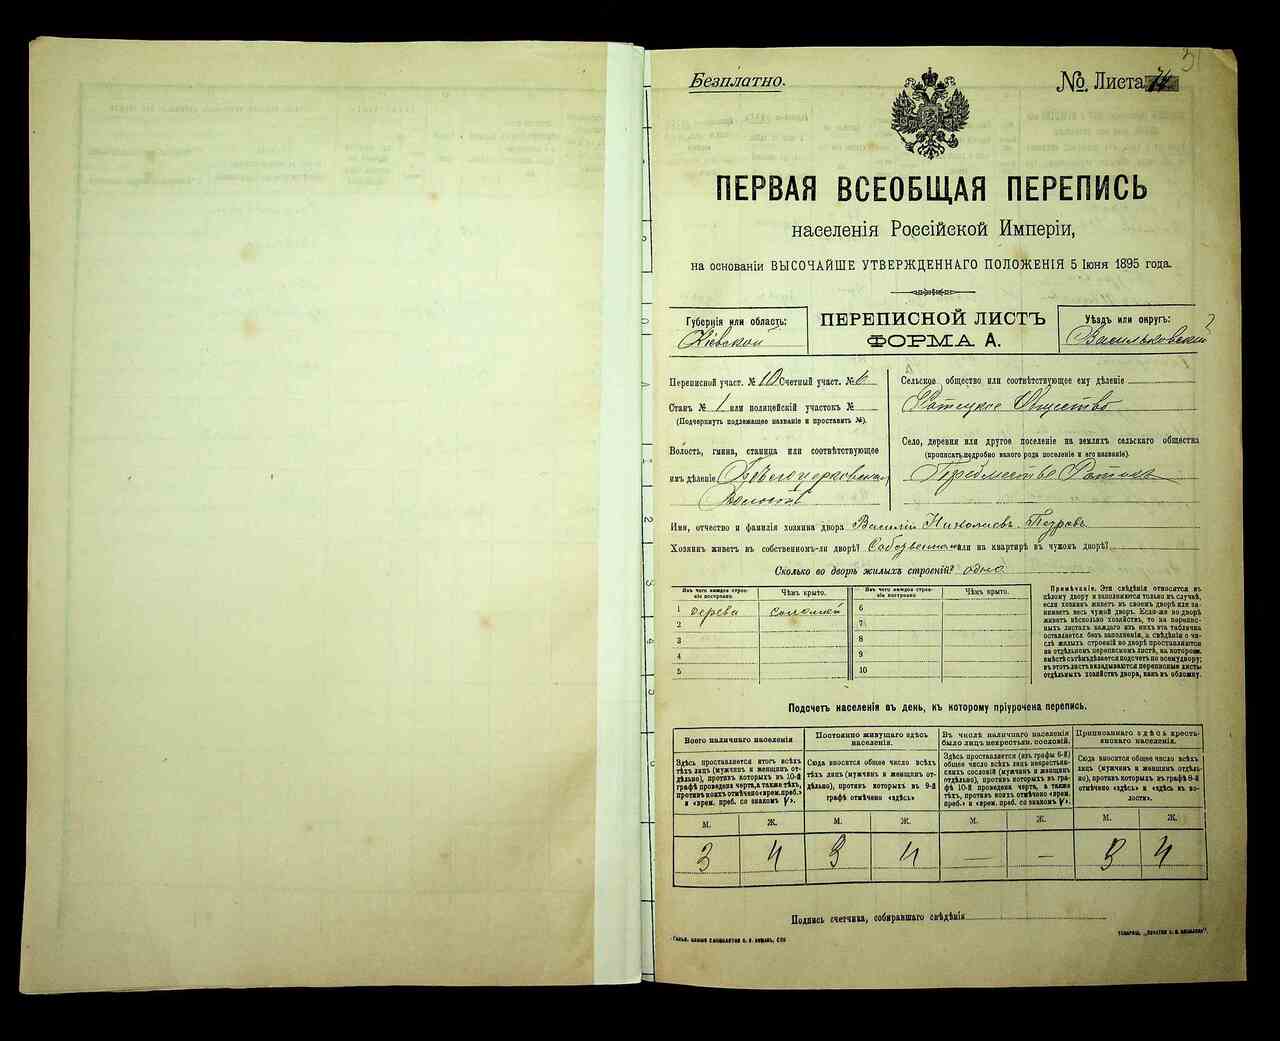 Безплатно.
№ Листа 74
ПЕРВАЯ ВСЕОБЩАЯ ПЕРЕПИСЬ
населенія Россійской Имперіи,
на основаніи ВЫСОЧАЙШЕ УТВЕРЖДЕННАГО ПОЛОЖЕНІЯ 5 Іюня 1895 года.
Губернія или область:
Кіевской
ПЕРЕПИСНОЙ ЛИСТЪ
ФОРМА А.
Уѣздъ или округъ:
Васильковскій
Переписной участ. № 10 Счетный участ. № 6
Станъ № 1 или полицейскій участокъ №
(Подчеркнуть подлежащее названіе и проставить №).
Волость, гмина, станица или соотвѣтствующее
имъ дѣленіе Бѣлоцерковская
Волость
Сельское общество или соотвѣтствующее ему дѣленіе
Ротецкое Общество
Село, деревня или другое поселеніе на земляхъ сельскаго общества
(прописать подробно какого рода поселеніе и его названіе).
Передмѣстье Ротокъ
Имя, отчество и фамилія хозяина двора Василій Николаевъ Петровъ
Хозяинъ живетъ въ собственномъ-ли дворѣ? или на квартирѣ въ чужомъ дворѣ?
Сколько во дворѣ жилыхъ строеній? одно
Изъ чего каждое строеніе построено.
Чѣмъ крыто.
Изъ чего каждое строеніе построено.
Чѣмъ крыто.
1 дерева соломой 6
2 7
3 8
4 9
5 10
Примѣчаніе. Эти свѣдѣнія относятся къ
цѣлому двору и заполняются только въ случаѣ,
если хозяинъ живетъ въ своемъ дворѣ или занимаетъ
весь чужой дворъ. Если-же во дворѣ
живетъ нѣсколько хозяйствъ, то на переписныхъ
листахъ каждаго изъ нихъ эта табличка
оставляется безъ заполненія, а свѣдѣнія о числѣ
жилыхъ строеній во дворѣ проставляются
на отдѣльномъ переписномъ листѣ, на которомъ
вмѣстѣ съ тѣмъ дѣлается подсчетъ по всему двору;
въ этотъ листъ вкладываются переписные листы
отдѣльныхъ хозяйствъ двора, какъ въ обложку.
Подсчетъ населенія въ день, къ которому пріурочена перепись.
Всего наличнаго населенія
Здѣсь проставляется итогъ всѣхъ
тѣхъ лицъ (мужчинъ и женщинъ отдѣльно),
противъ которыхъ въ 10-й
графѣ проведена черта, а также тѣхъ,
противъ коихъ отмѣчено «врем. преб.»
и «врем. преб. со знакомъ V».
Постоянно живущаго здѣсь
населенія.
Сюда вносится общее число всѣхъ
тѣхъ лицъ (мужчинъ и женщинъ отдѣльно),
противъ которыхъ въ 9-й
графѣ отмѣчено «здѣсь»
Въ числѣ наличнаго населенія
было лицъ некрестьян. сословій.
Здѣсь проставляется (изъ графы 6-й)
общее число всѣхъ лицъ некрестьянскихъ
сословій (мужчинъ и женщинъ
отдѣльно), противъ которыхъ въ графѣ
10-й проведена черта, а также
тѣхъ, противъ коихъ отмѣчено «врем.
преб.» и «врем. преб. со знакомъ V».
Приписаннаго здѣсь крестьянскаго
населенія.
Сюда вносится общее число всѣхъ
лицъ (мужчинъ и женщинъ отдѣльно),
противъ которыхъ въ графѣ 8-й
отмѣчено «здѣсь» и «здѣсь въ волости».
М. Ж. М. Ж. М. Ж. М. Ж.
3 4 3 4 — — 3 4
Подпись счетчика, собиравшаго свѣдѣнія